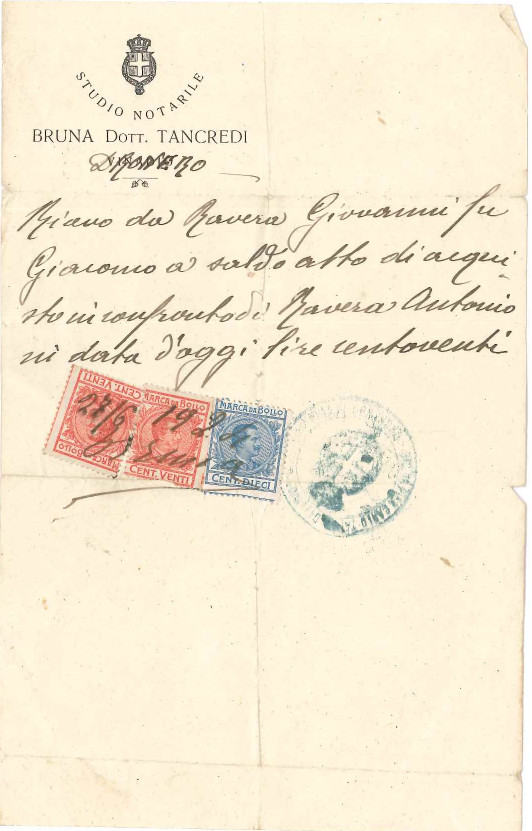 STUDIO NOTARILE
BRUNA DOTT. TANCREDI
DRONERO
Ricevo da Ravera Giovanni fu
Giacomo a saldo atto di acqui
sto in confronto di Ravera Antonio
in data d'oggi lire centoventi
MARCA DA BOLLO
CENT. VENTI
MARCA DA BOLLO
CENT. VENTI
MARCA DA BOLLO
CENT. DIECI
27/9 1924
Bruna